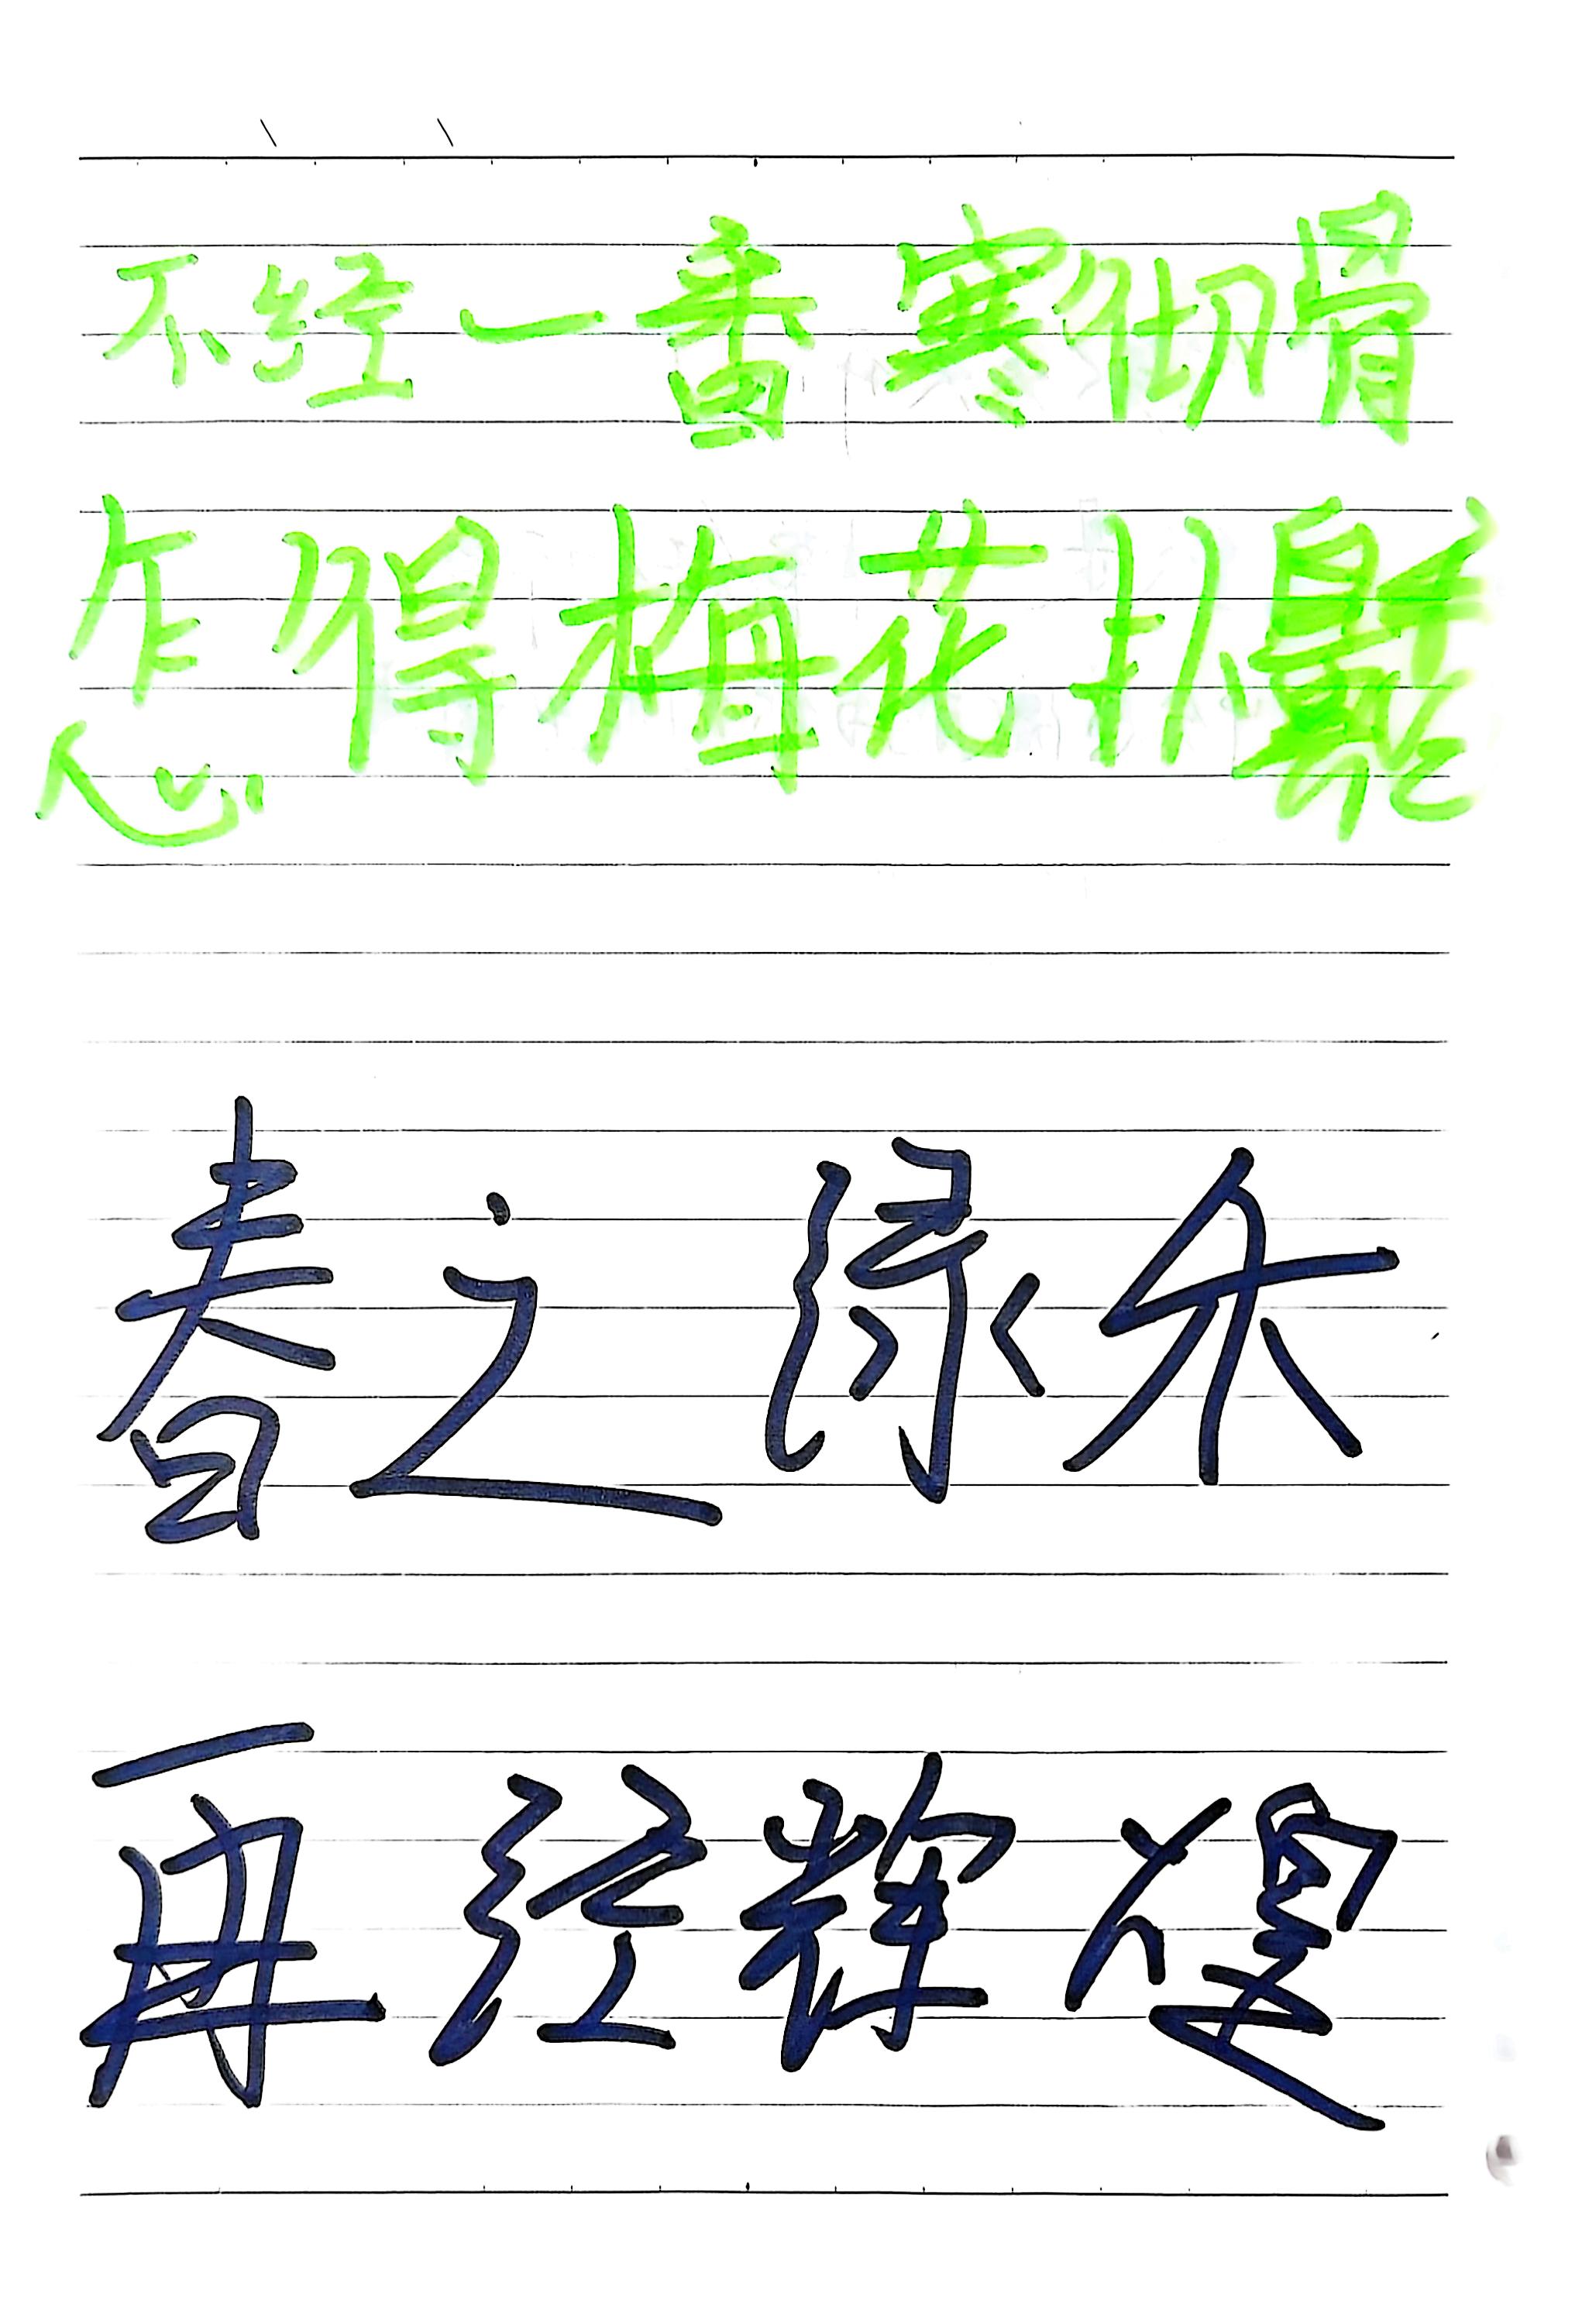 不经一番寒彻骨
怎得梅花扑鼻香
春之绿禾
再经辉煌